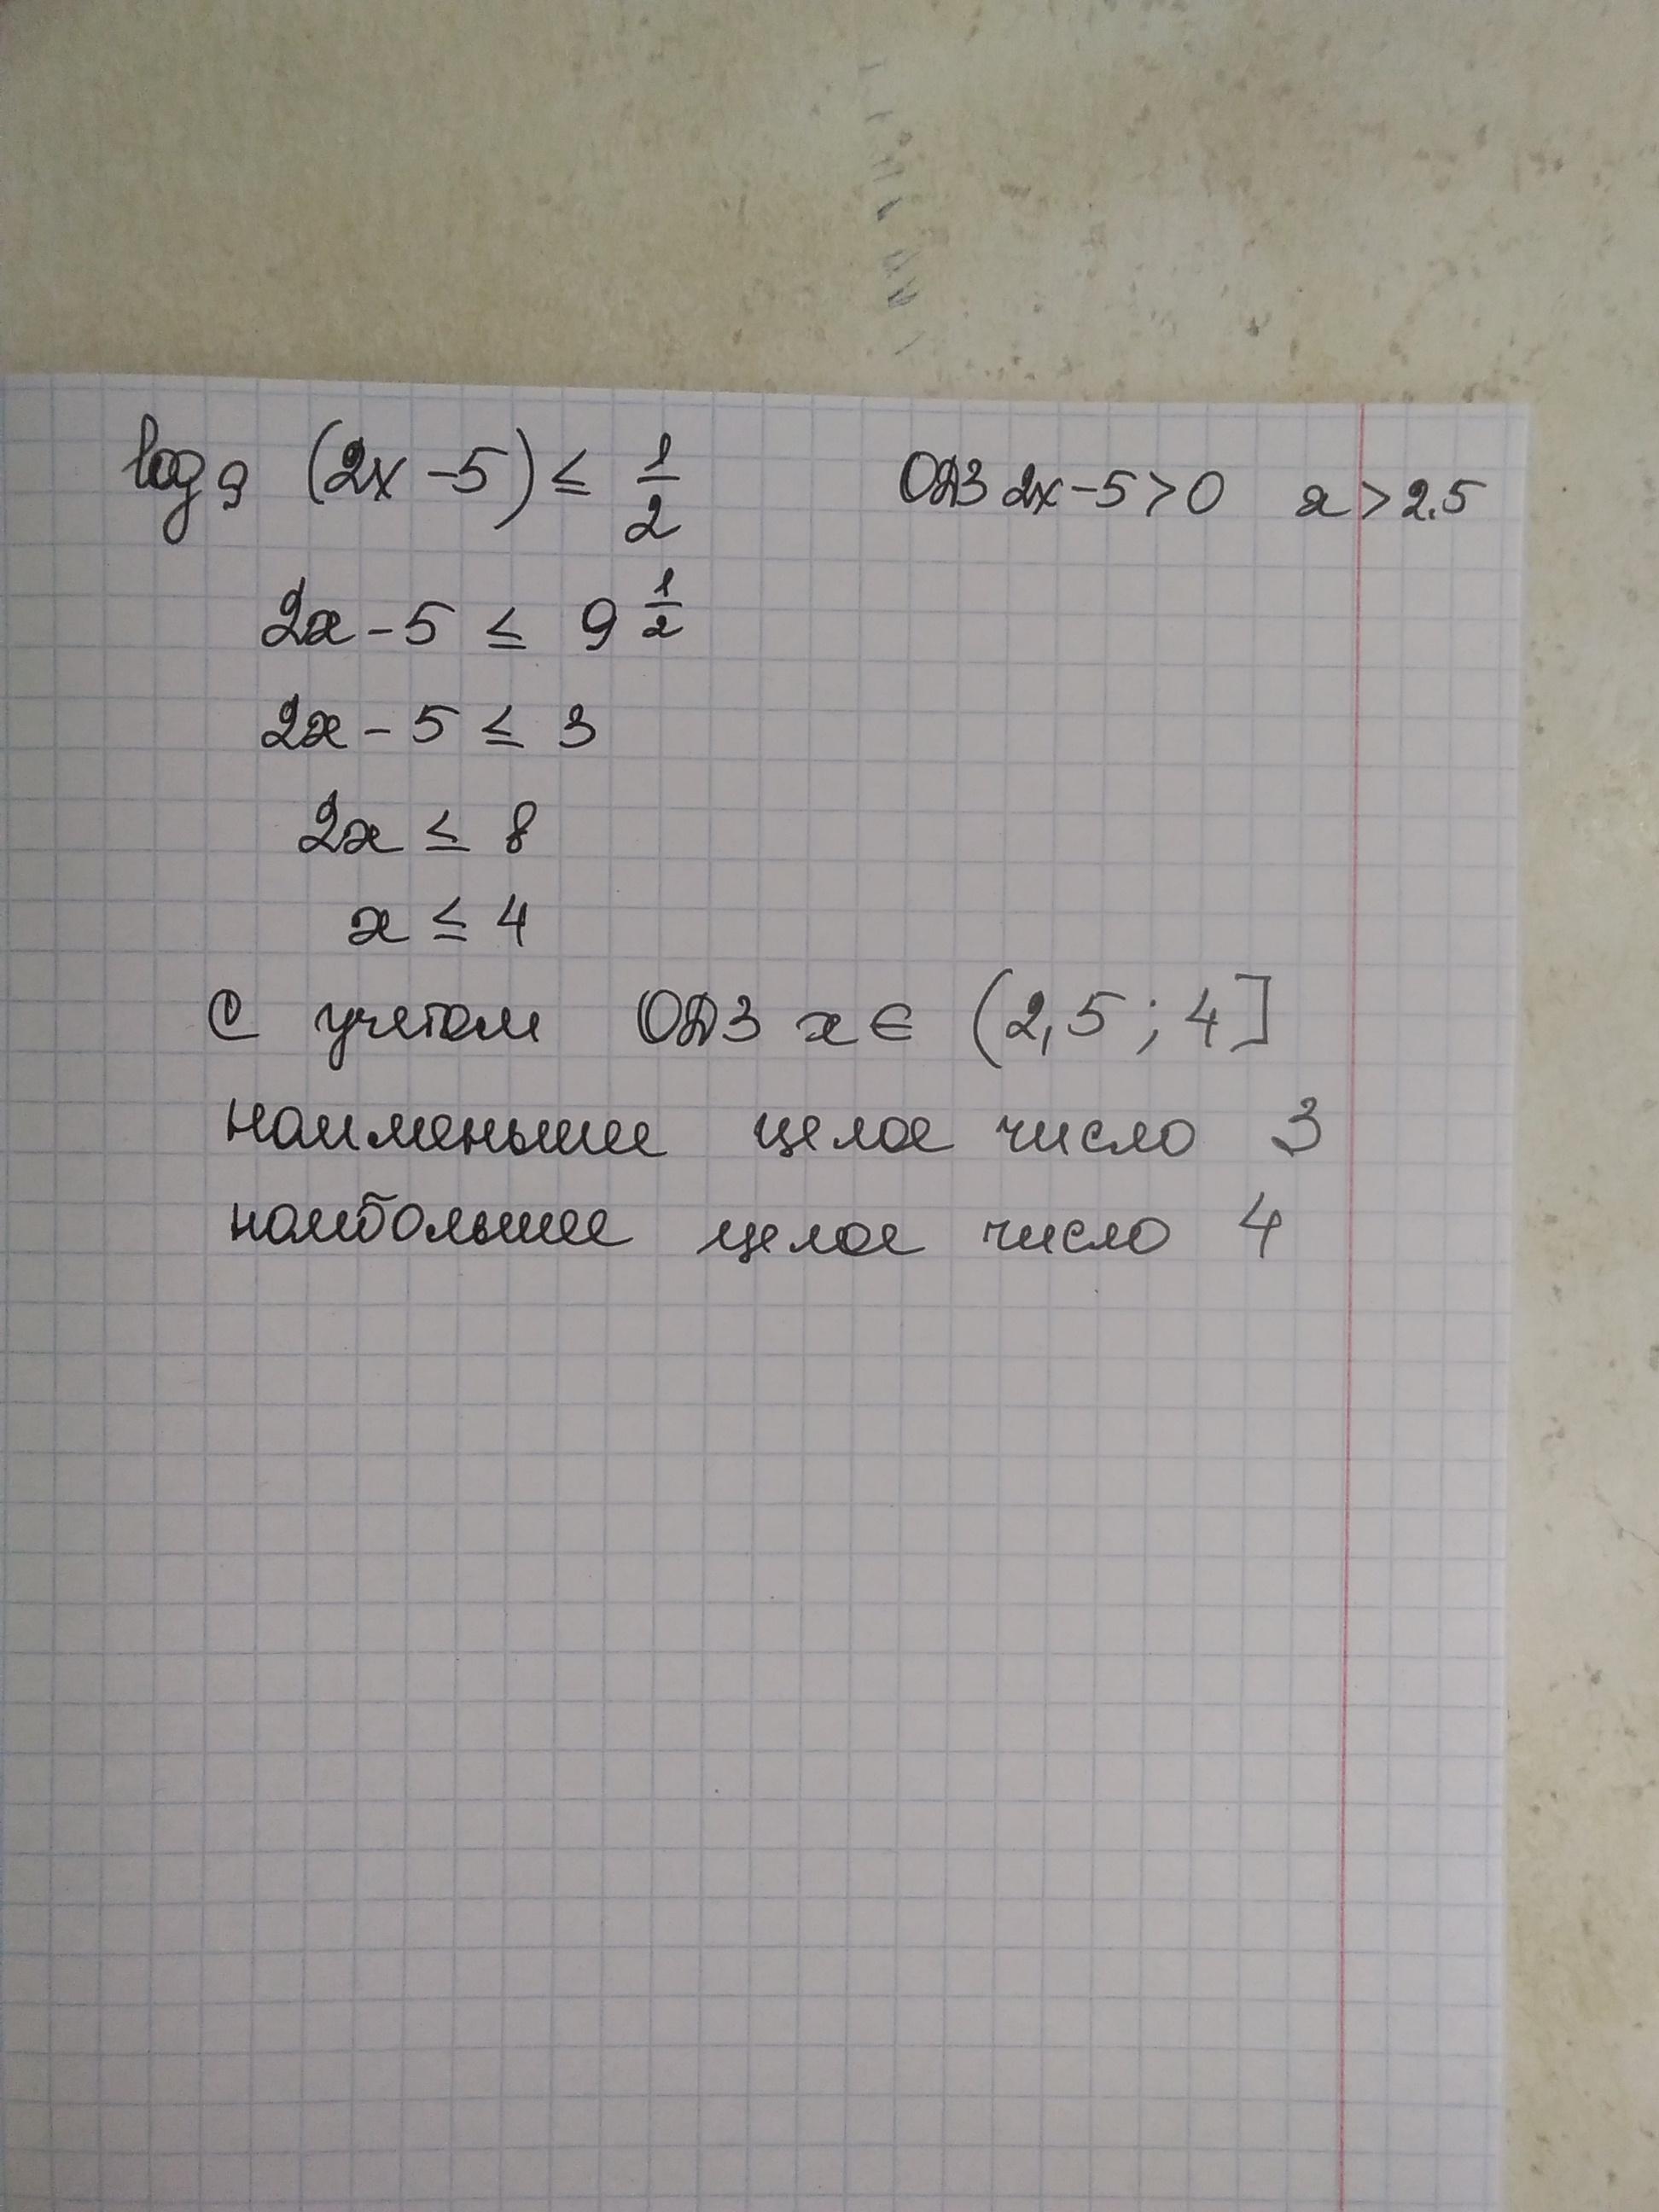 log₉ (2x-5) ≤ 1/2 ОДЗ 2x-5>0 x>2.5
2x-5 ≤ 9^(1/2)
2x-5 ≤ 3
2x ≤ 8
x ≤ 4
С учетом ОДЗ x∈ (2,5; 4]
наименьшее целое число 3
наибольшее целое число 4